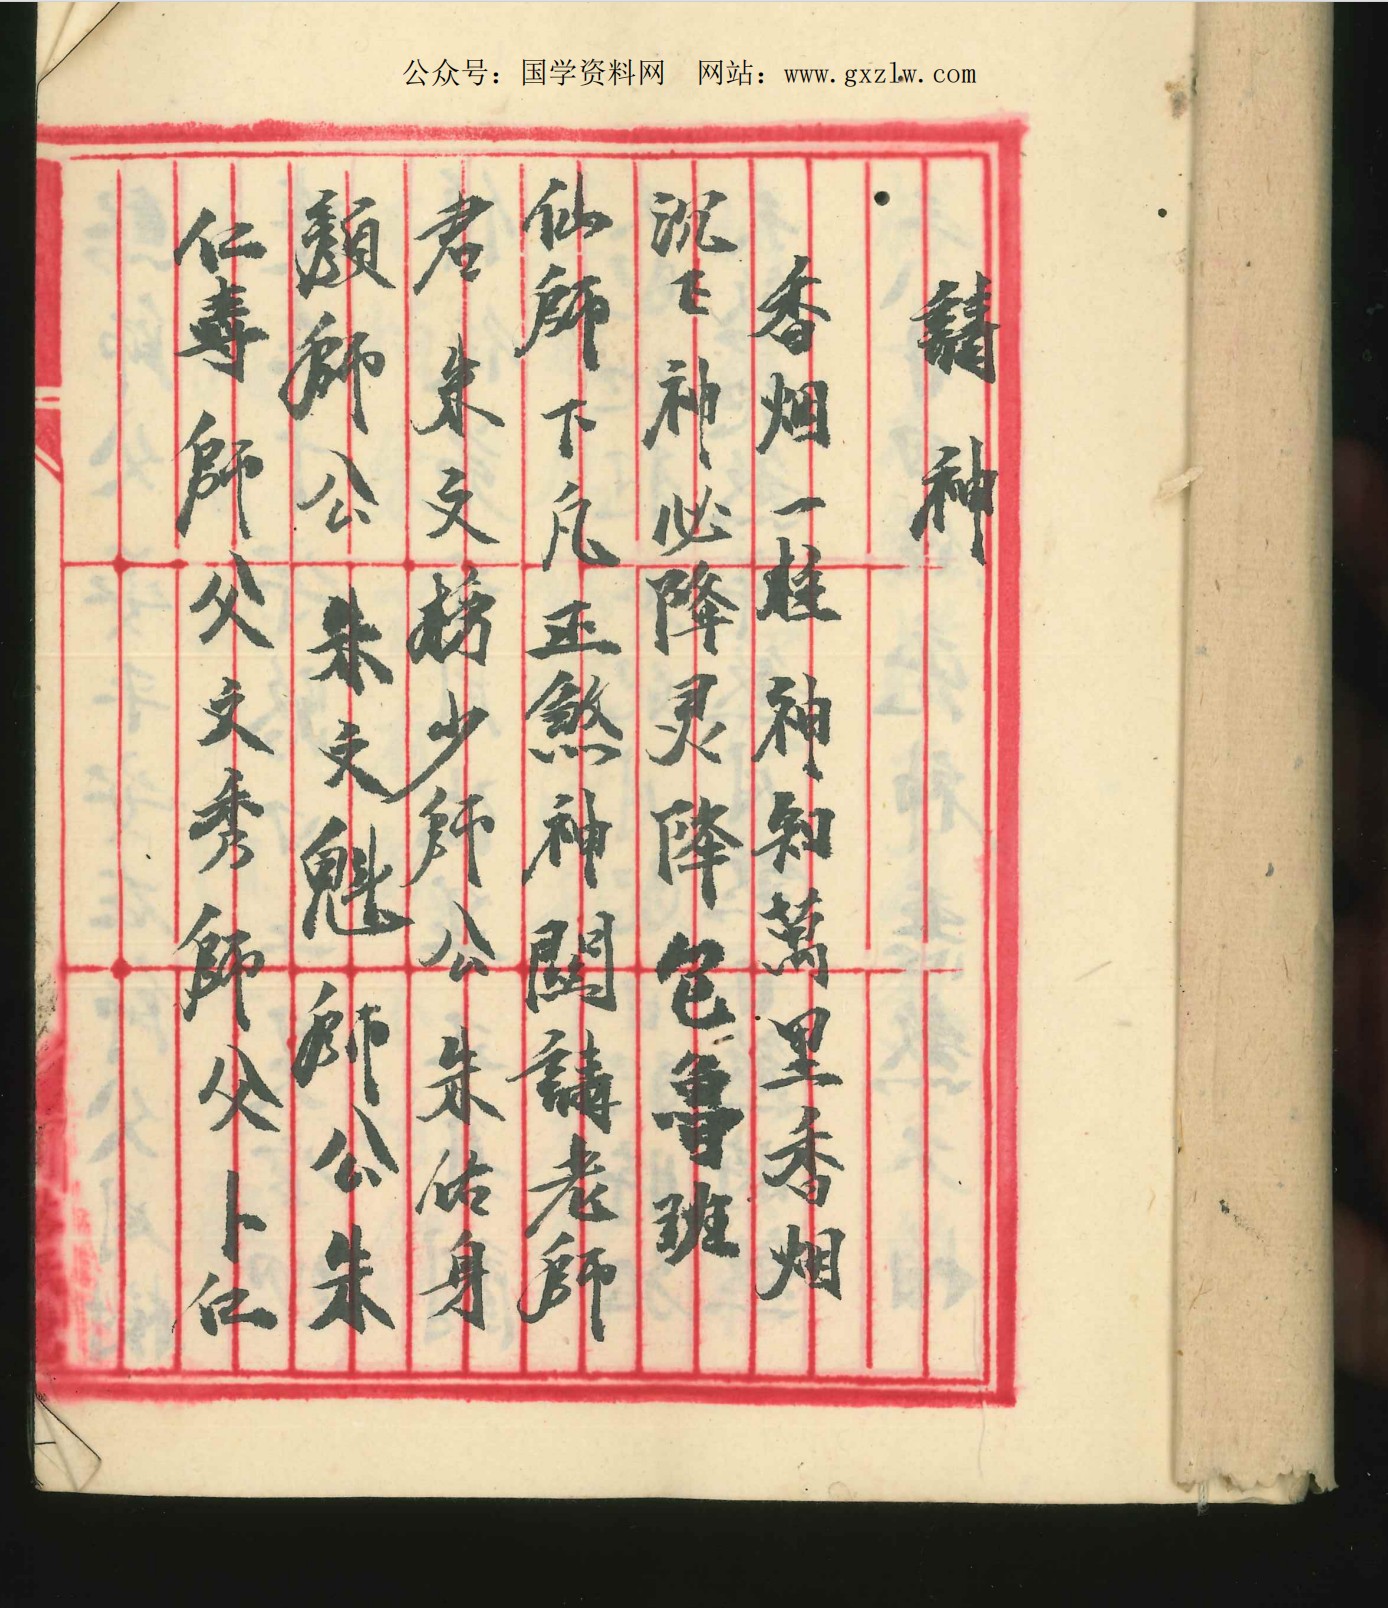 公众号：国学资料网　网站：www.gxzlw.com
請神
香烟一炷神知萬里香烟
沉〻神必降灵降包魯班
仙師下凡正煞神関請老師
君朱文榜少師公朱佑身
顏師公朱文魁師公朱
仁壽師父文秀師父卜仁